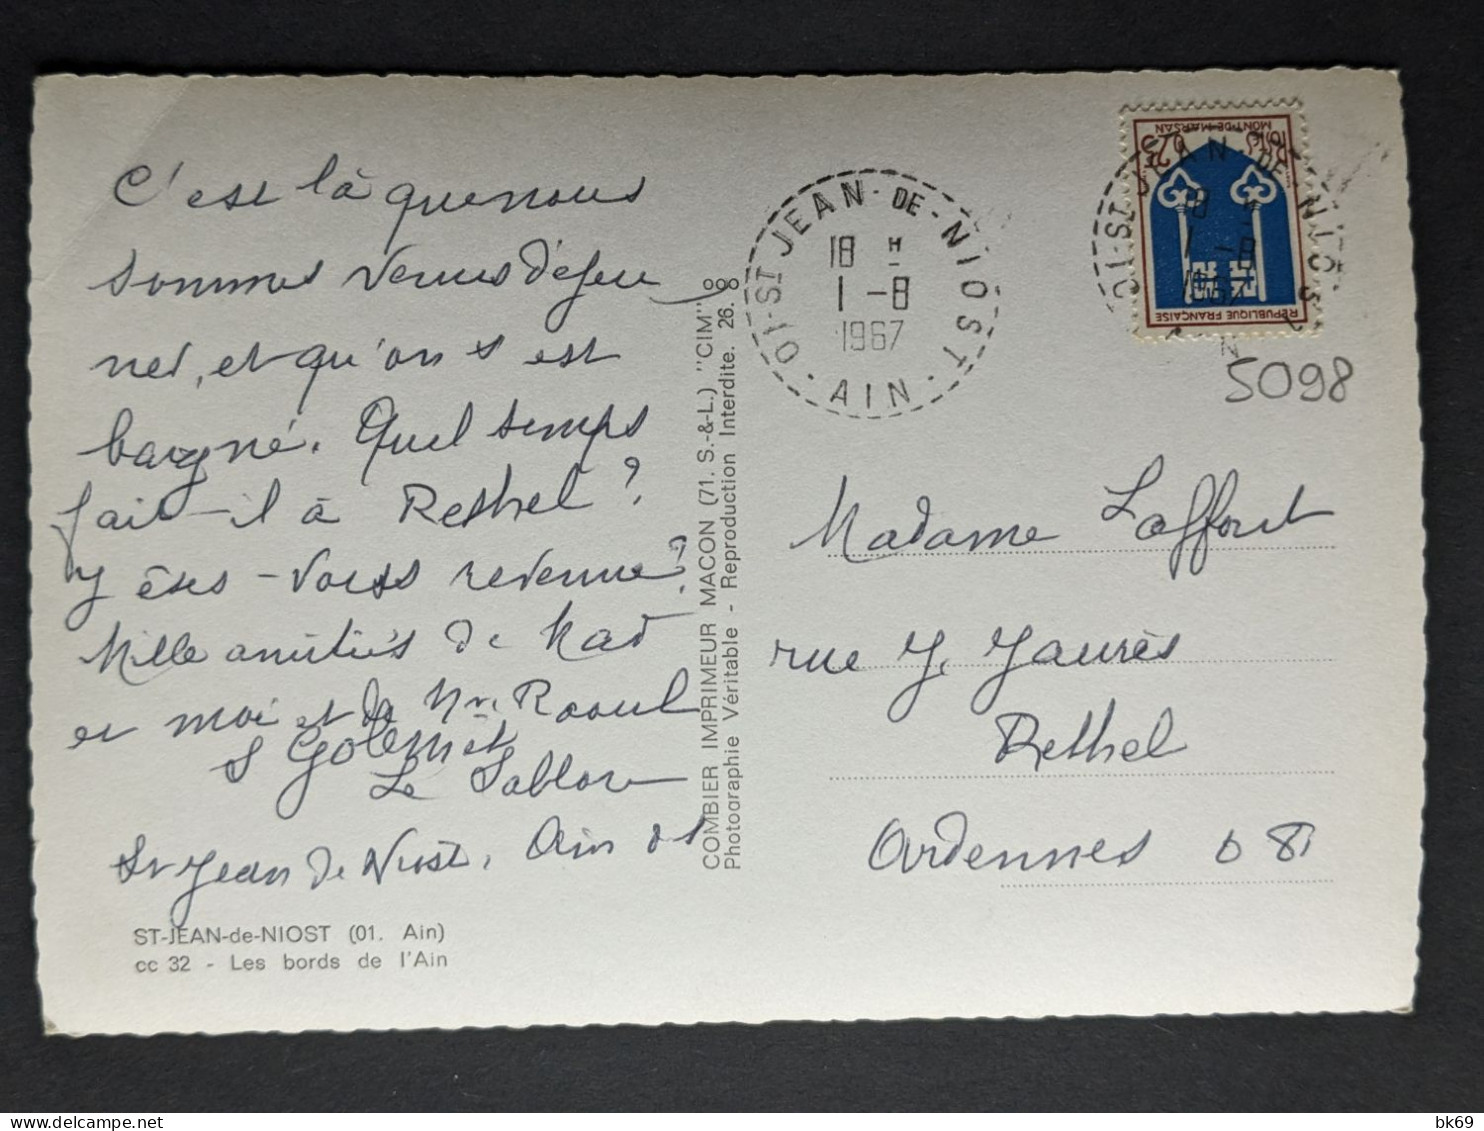 C'est là que nous
sommes venus déjeu
ner, et qu'on s'est
baigné. Quel temps
fait-il à Rethel ?
y êtes-vous revenue ?
Mille amitiés de Mad
et moi et de Mr Raoul
S Golemiet
Le Sablon
St Jean de Niost, Ain 01
ST-JEAN-de-NIOST (01. Ain)
cc 32 - Les bords de l'Ain
COMBIER IMPRIMEUR MACON (71. S.-&-L.) "CIM"
Photographie Véritable - Reproduction Interdite. 26.
01-ST JEAN-DE-NIOST
18 H
1 -8
1967
AIN
RÉPUBLIQUE FRANÇAISE
0,25
POSTES
MONT-DE-MARSAN
01-ST JEAN-DE-NIOST
18 H
1 -8
1967
5098
Madame Laffont
rue J. Jaurès
Rethel
Ardennes 08
bk69